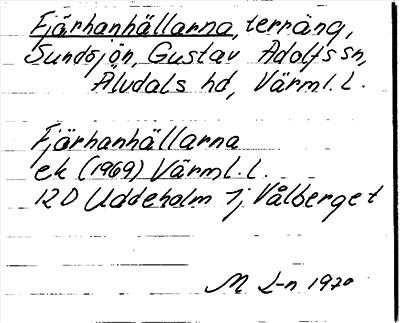 Fjärhanhällarna, terräng,
Sundsjön, Gustav Adolfs sn,
Älvdals hd, Värml. L.
Fjärhanhällarna
ek (1969) Värml. L.
12D Uddeholm 7j Vålberget
M L-n 1970